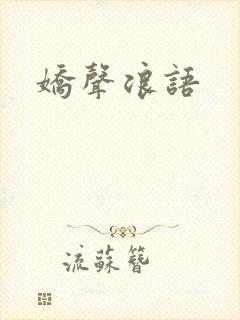 嬌聲浪語
流蘇簪